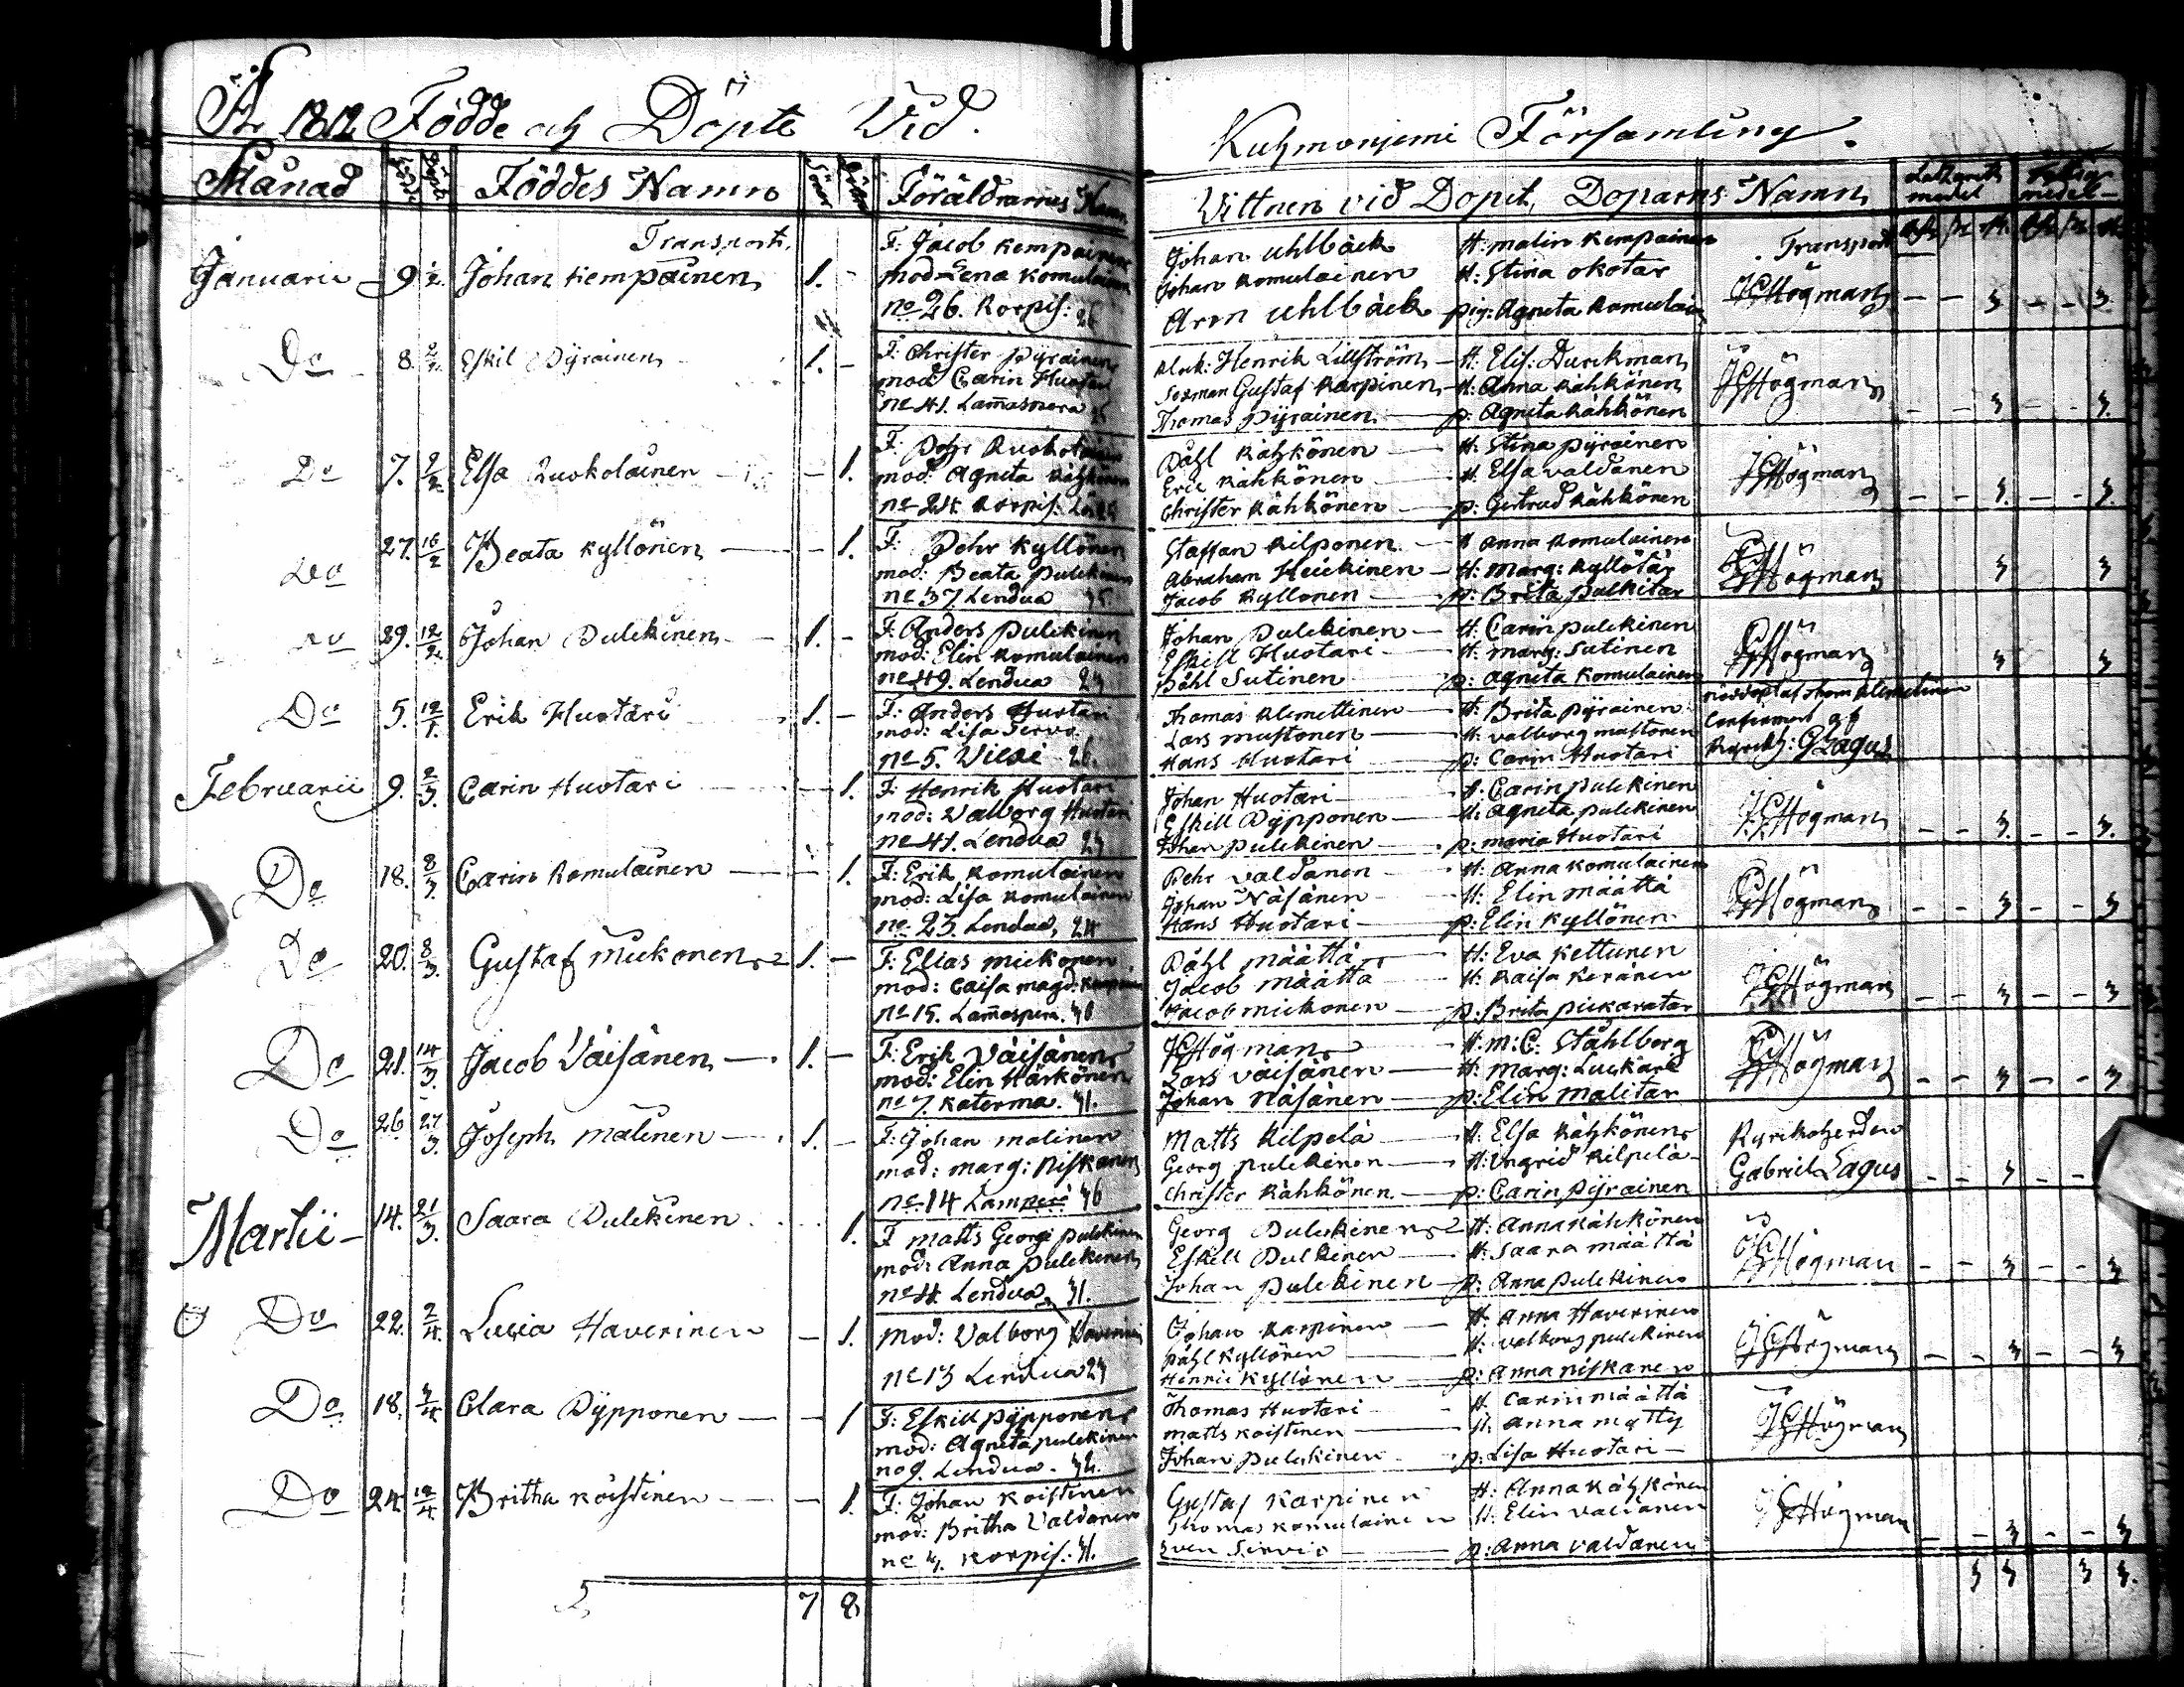 År 1812 Födde och Döpte Vid
Månad Född Döpt Föddes Namn Söner Döttrar Föräldrarnes Namn
Transport.
Januarii 9 2/2 Johan Kempainen 1. -
F: Jacob Kempainen
mod: Lena Komulainen
no 26. Korpis: 26
Do 8 2/2 Eskil Pyrainen 1. -
F: Christer Pyrainen
mod Carin Huotari
no 41. Lam̄aspera
Do 7. 9/2 Elsa Ruokolainen - 1.
F: Pehr Ruokolainen
mod: Agneta Kähkönen
no 24 Korpis:
Do 27. 16/2 Beata Kyllönen - 1.
F: Pehr Kyllönen
mod: Beata Pulckinen
no 37 Lendua
Do 29. 12/2 Johan Pulckinen 1. -
F: Anders Pulckinen
mod: Elin Komulainen
no 49. Lendua 23
Do 5. 12/1. Erik Huotari 1. -
F: Anders Huotari
mod: Lisa Servo
no 5. Viexi 26.
Februarii 9. 2/3. Carin Huotari - 1.
F: Henrik Huotari
mod: Valborg Huotari
no 41. Lendua 23
Do 18. 8/3. Carin Komulainen - 1.
F: Erik Komulainen
mod: Lisa Komulainen
no 23. Lendua, 24
Do 20. 8/3. Gustaf Mickonen 1. -
F: Elias Mickonen
mod: Caisa Magd:
no 15. Lam̄aspera. 30
Do 21. 14/3. Jacob Väisänen 1. -
F: Erik Väisänen
mod: Elin Härkönen
no 7. Katerma. 31.
Do 26 27/3. Joseph Malinen 1. -
F: Johan Malinen
mod: Marg: Niskanen
no 14 Lam̄pera 36
Martii 14. 21/3. Saara Pulckinen 1.
F Matts Georg: Pulckinen
mod: Anna Pulckinen
no 4. Lendua 31.
Do 22. 2/4. Lucia Haverinen - 1.
mod: Valborg Haverinen
no 13 Lendua 23
Do 18. 3/4 Clara Pypponen - 1
F: Eskill Pypponen
mod: Agneta Pulckinen
no 9. Lendua. 32.
Do 24 12/4. Britha Koistinen - 1.
F: Johan Koistinen
mod: Britha Valdanen
no 3. Korpis: 31.
7 8
Kuhmonjemi Församling.
Vittnen vid Dopet, Doparns Namn Lazarets medel
Transport
Johan Uhlbäck H: Malin Kempainen
Johan Komulainen H: Stina Okotar JCHögman - - 3 - - 3.
Aron Uhlbäck pig: Agneta Komulain
Klock: Henrik Lillström H: Elis: Durckman
Sexman Gustaf Karpinen H: Anna Kähkönen JCHögman
Thomas Pyrainen p: Agneta Kähkönen - - 3 - - 3.
Påhl Kähkönen H: Stina Pyrainen
Eric Kähkönen H: Elsa Valdanen JCHögman
Christer Kähkönen p: Gertrud Kähkönen - - 3. - - 3.
Staffan Kilponen H Anna Komulainen
Abraham Heickinen H: Marg: Kyllötär JCHögman 3 3
Jacob Kyllonen p: Brita Pulkitar
Johan Pulckinen H: Carin Pulckinen
Eskill Huotari H: Marg: Sutinen JCHögman 3 3
Påhl Sutinen p: Agneta Komulainen
Thomas Klemettinen H: Brita Pyrainen nöddöpt af Thom Klemetinen
Lars Mustonen H: Valborg Mustonen Confirmert af
Hans Huotari p: Carin Huotari Kyrckh: GLagus
Johan Huotari H. Carin Pulckinen
Eskill Pypponen H: Agneta Pulckinen JCHögman - - 3. - - 3.
Johan Pulckinen p: Maria Huotari
Pehr Valdanen H: Anna Komulainen
Johan Näsänen H: Elin Määttä JCHögman - - 3 - - 3
Hans Huotari p: Elin Kyllönen
Påhl Määttä H: Eva Kettunen
Jacob Määttä H: Kaisa Keränen JCHögman - - 3 - - 3
Jacob Mickonen p: Brita Pickaratar
JCHögman H: M: C: Ståhlberg
Lars Väisänen H: Marg: Luckare JCHögman - - 3 - - 3
Johan Näsänen p: Elin Malitar
Matts Kilpelä H: Elsa Kähkönen Kyrkoherden
Georg Pulckinen H: Ingrid Kilpelä Gabriel Lagus - - 3 - -
Christer Kähkönen p: Carin Pyrainen
Georg Pulckinen H: Anna Kähkönen
Eskill Pulkinen H: Saara Määttä JCHögman - - 3 - - 3
Johan Pulckinen p: Anna Pulckinen
Johan Karpinen H: Anna Haverinen
Påhl Kyllönen H: Valborg Pulckinen JCHögman - - 3 - - 3
Henric Kyllönen p: Anna Niskanen
Thomas Huotari H Carin Määttä
Matts Koistinen H. Anna Matty JCHögman
Johan Pulckinen p: Lisa Huotari
Gustaf Karpinen H: Anna Kähkönen
Thomas Komulainen H: Elin Valdanen JCHögman - - 3 - - 3
Sven Servio p: Anna Valdanen
3 3 3 3.